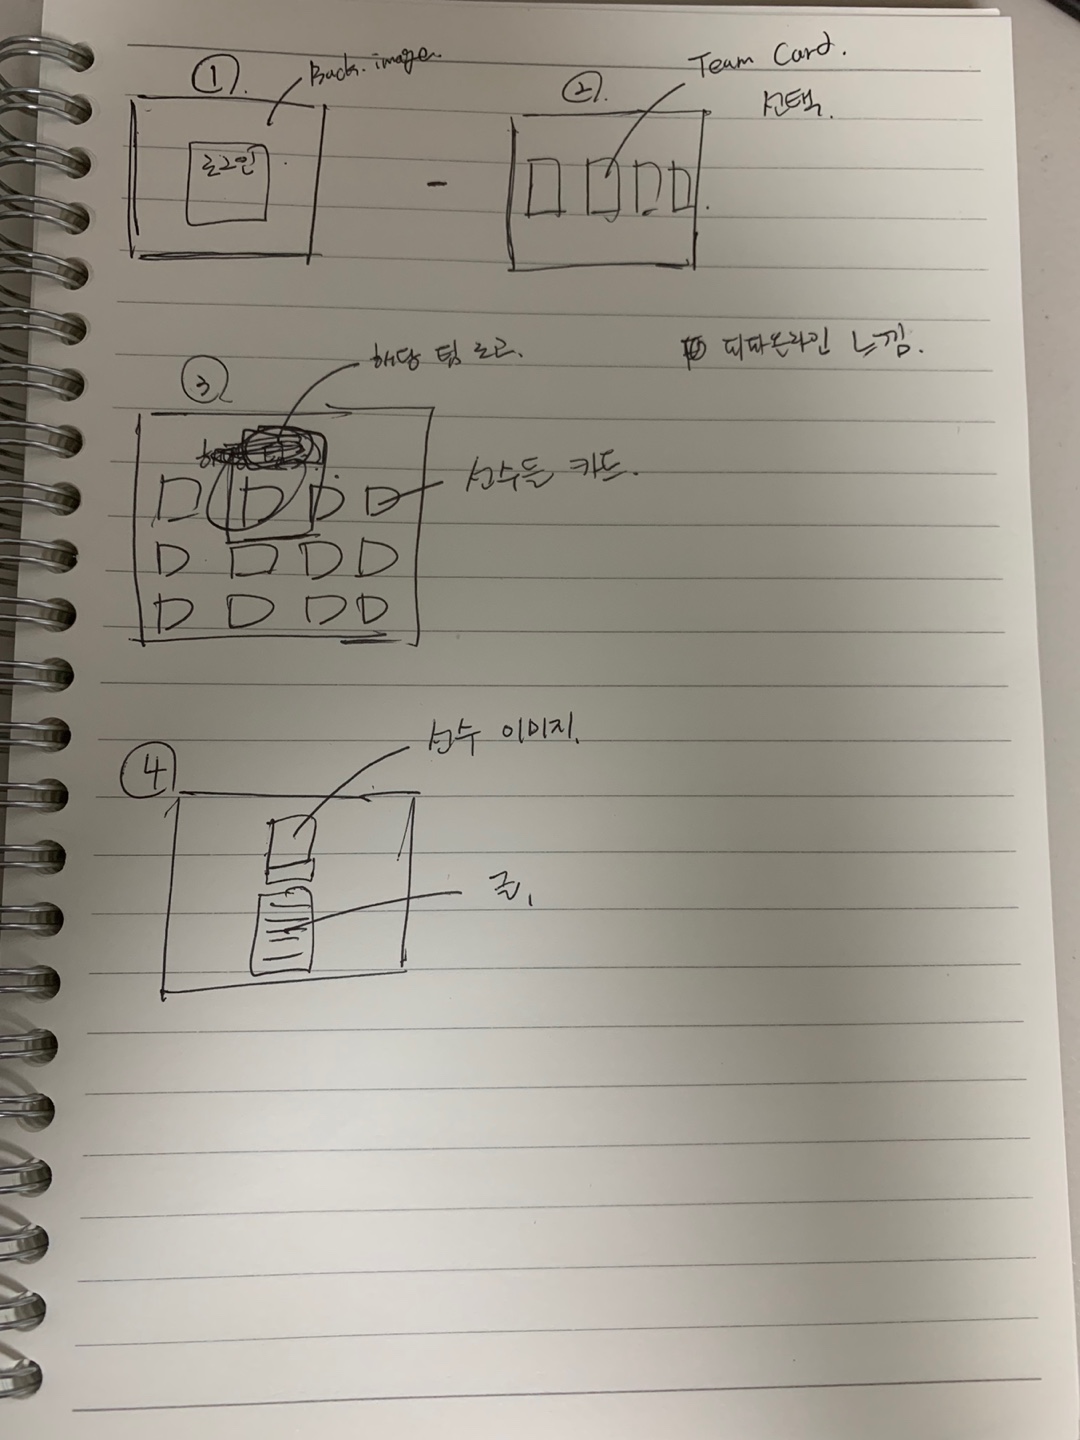 ①.
Back. image.
로그인
②.
Team Card.
선택.
③
해당 팀 로고.
피파온라인 느낌.
선수들 카드.
④
선수 이미지.
글.